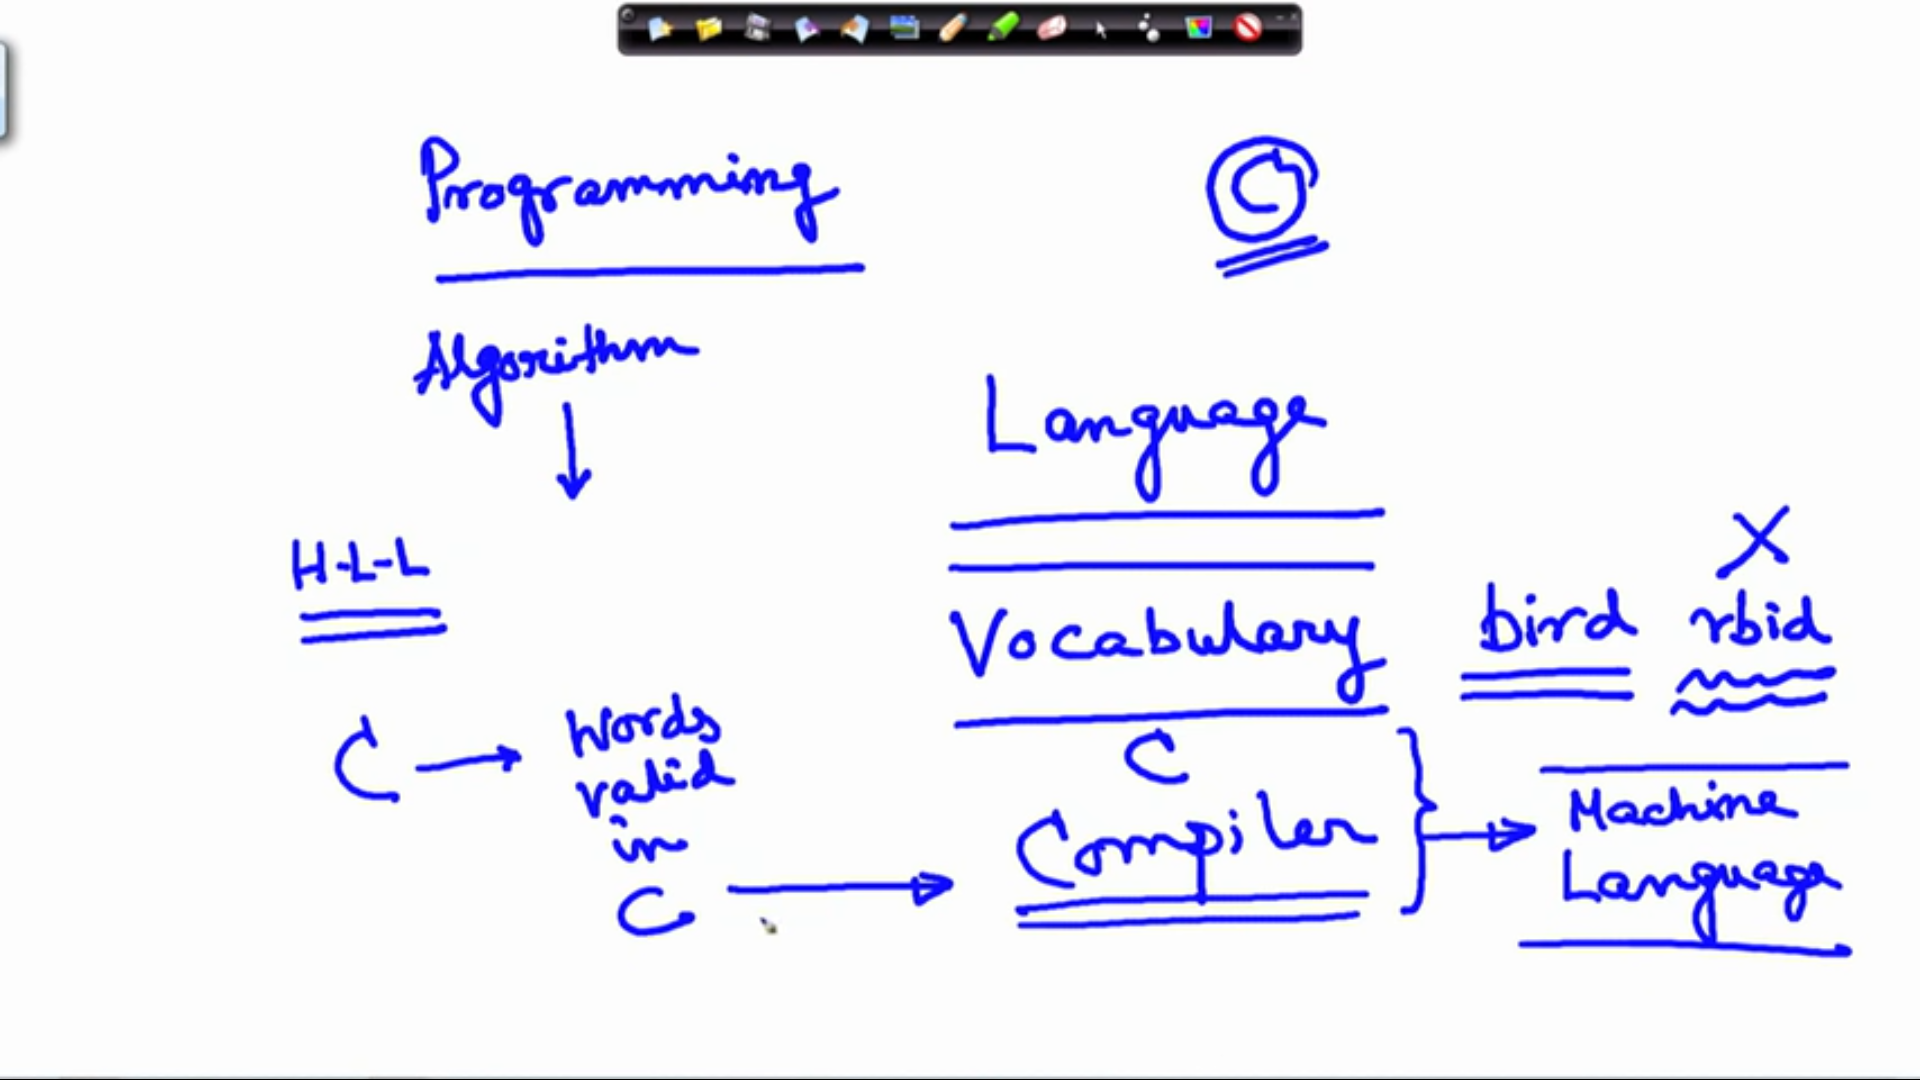 Programming
C
Algorithm
Language
H-L-L
Vocabulary
bird
X
rbid
C
words
valid
in
C
C
Compiler
Machine
Language